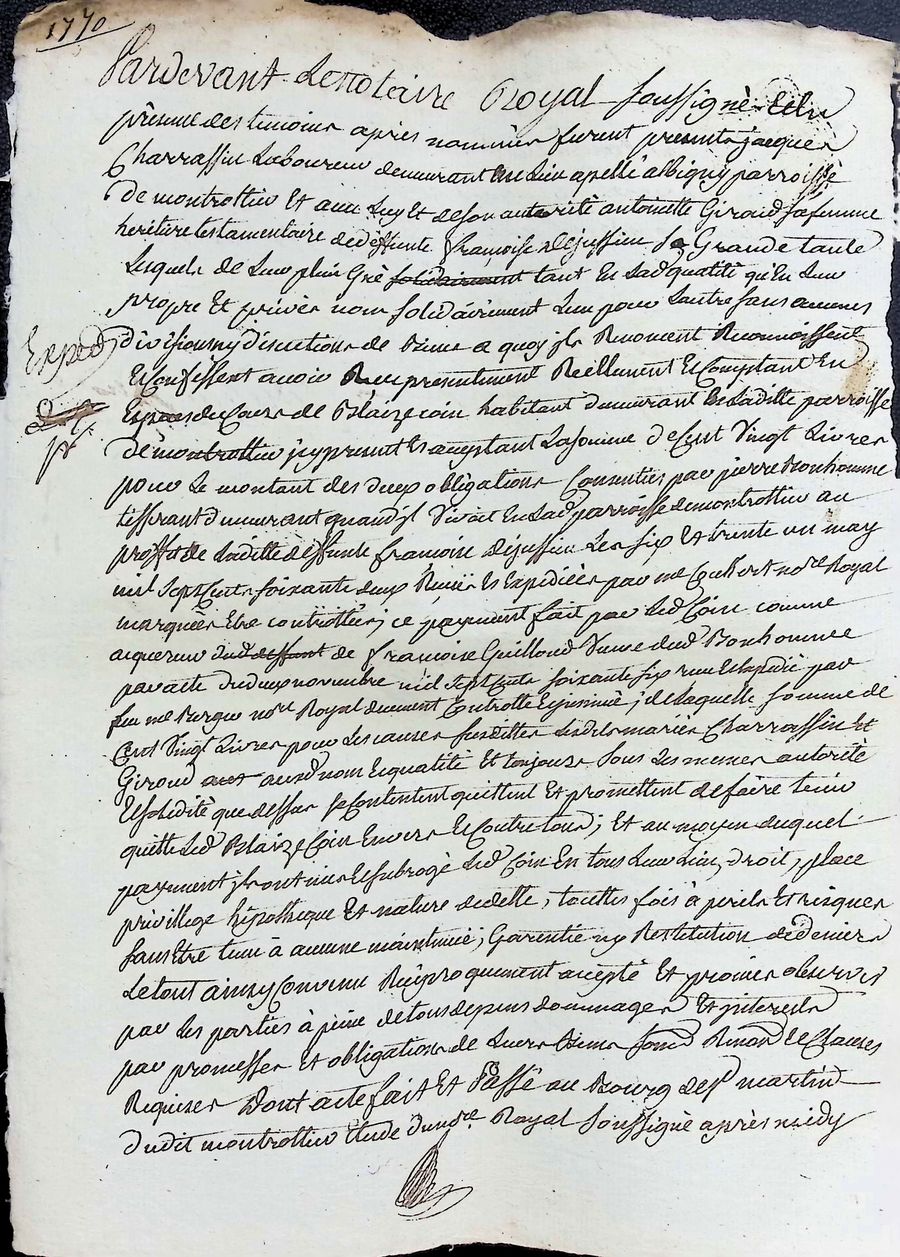 1770
Pardevant Le notaire Royal soussigné Et En
présence des temoins après nommées furent presents jacques
Charrassin Laboureur demeurant au Lieu apellé albigny parroisse
de montrottier Et avec Luy et de son autorité antoinette Giroud sa femme
heritiere testamentaire de deffunte françoise Dejussieu sa Grande tante
Lesquels de Leur plein Gré solidairement tant En Lad. qualité qu'En Leur
propre Et privés nom solidairement L'un pour L'autre sans aucunes
Exped
divisions ny discutions de biens a quoy ils Renoncent Reconnoissent
Et Confessent avoir Reçu presentement Réellement Et Comptant En
Especes de Cours de Blaize Coin habitant demeurant En Laditte parroisse
de montrottier jcy present Et acceptant La somme de Cent Vingt Livres
pour Le montant des deux obligations Consenties par pierre Bonhomme
tisserant demeurant quand il Vivoit En Lad. parroisse de montrottier au
proffit de Laditte deffunte françoise dejussieu Les six Et trente un may
mil Sept Cents soixante deux Reçües Et Expediées par me no.re Royal
marquées Etre controllées; ce payement fait par Led. Coin comme
acquereur dud. deffunt de françoise Guilloud Veuve dud. Bonhomme
par acte du deux novembre mil sept Cents soixante six reçu Et Expedié par
feu me no.re Royal duement Controllé Et insinué; de Laquelle somme de
Cent Vingt Livres pour Les causes susdittes Lesdits mariés Charrassin Et
Giroud auxd. nom Et qualité Et toujours sous Les memes autorité
Et solidité que dessus se Contentent quittent Et promettent de faire tenir
quitte Led. Blaize Coin Envers Et Contre tous; Et au moyen duquel
payement ils ont mis Et subrogé Led. Coin En tous Leur Lieu, droit, place
privillege hipotheque Et nature de dette, touttes fois à perils Et risques
sans Etre tenu à aucune maintenüe, Garentie ny Restitution de deniers
Le tout ainsy Convenu Reciproquement accepté Et promis observer
par Les parties à peine de tous depens dommages Et interests
par promesses Et obligations de Leurs biens soum. Renon. Et Clauses
Requises Dont acte fait Et Passé au Bourg de St martin
dudit montrottier Etude du no.re Royal soussigné après midy